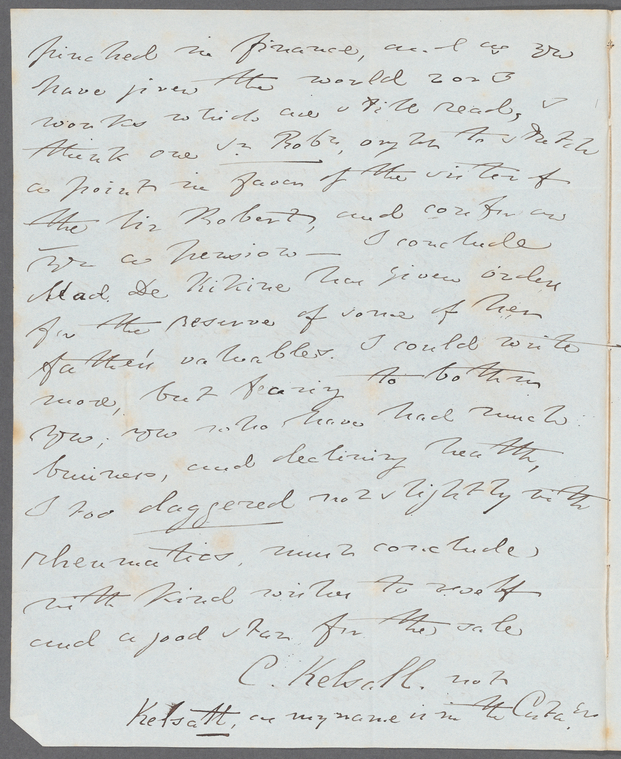 pinched in finance, and as you
have given the world 2 or 3
works which are still read, I
think one Sr. Robt, ought to stretch
a point in favor of the sister of
the Sir Robert, and confer on
you a pension — I conclude
Mad. De Kikine has given orders
for the reserve of some of her
father's valuables. I could write
more, but fearing to bother
you, you who have had much
business, and declining health,
I too daggered not slightly with
rheumatics, must conclude
with kind wishes to yourself
and a good star for the sale
C. Kelsall. not
Kelsall, as my name is in the Cata.